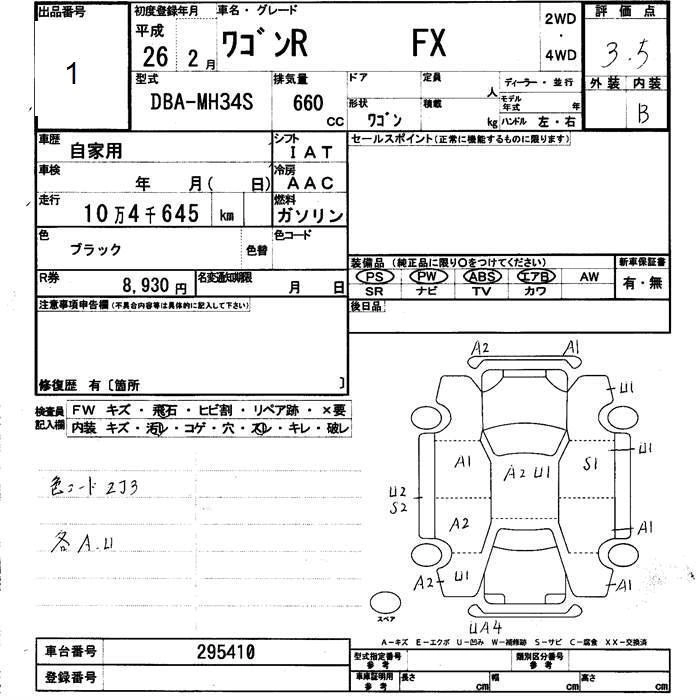 出品番号
1
初度登録年月
平成
26 2 月
車名・グレード
ワゴンR FX
2WD
・
4WD
評価点
3.5
型式
DBA-MH34S
排気量
660
CC
ドア
定員
人
形状
ワゴン
積載
kg
ディーラー・並行
モデル年式 年
ハンドル 左・右
外装 内装
B
車歴
自家用
シフト
IAT
車検
年 月( 日)
冷房
AAC
走行
10万4千645 km
燃料
ガソリン
色
ブラック
色替
色コード
R券
8,930 円
名変通知期限
月 日
セールスポイント(正常に機能するものに限ります)
装備品 (純正品に限り○をつけてください)
新車保証書
PS PW ABS エアB AW
有・無
SR ナビ TV カワ
後日品
注意事項申告欄(不具合内容等は具体的に記入して下さい)
修復歴 有〔箇所 〕
検査員記入欄
FW キズ・飛石・ヒビ割・リペア跡・×要
内装 キズ・汚レ・コゲ・穴・スレ・キレ・破レ
色コード 2J3
各 A.U
A2 A1
U1
A1 A2 U1 S1
U1
U2
S2
A2
A1
A2 U1
A1
UA4
スペア
A-キズ E-エクボ U-凹み W-補修跡 S-サビ C-腐食 XX-交換済
車台番号
295410
登録番号
型式指定番号
参考
類別区分番号
参考
車庫証明用
参考
長さ cm
幅 cm
高さ cm